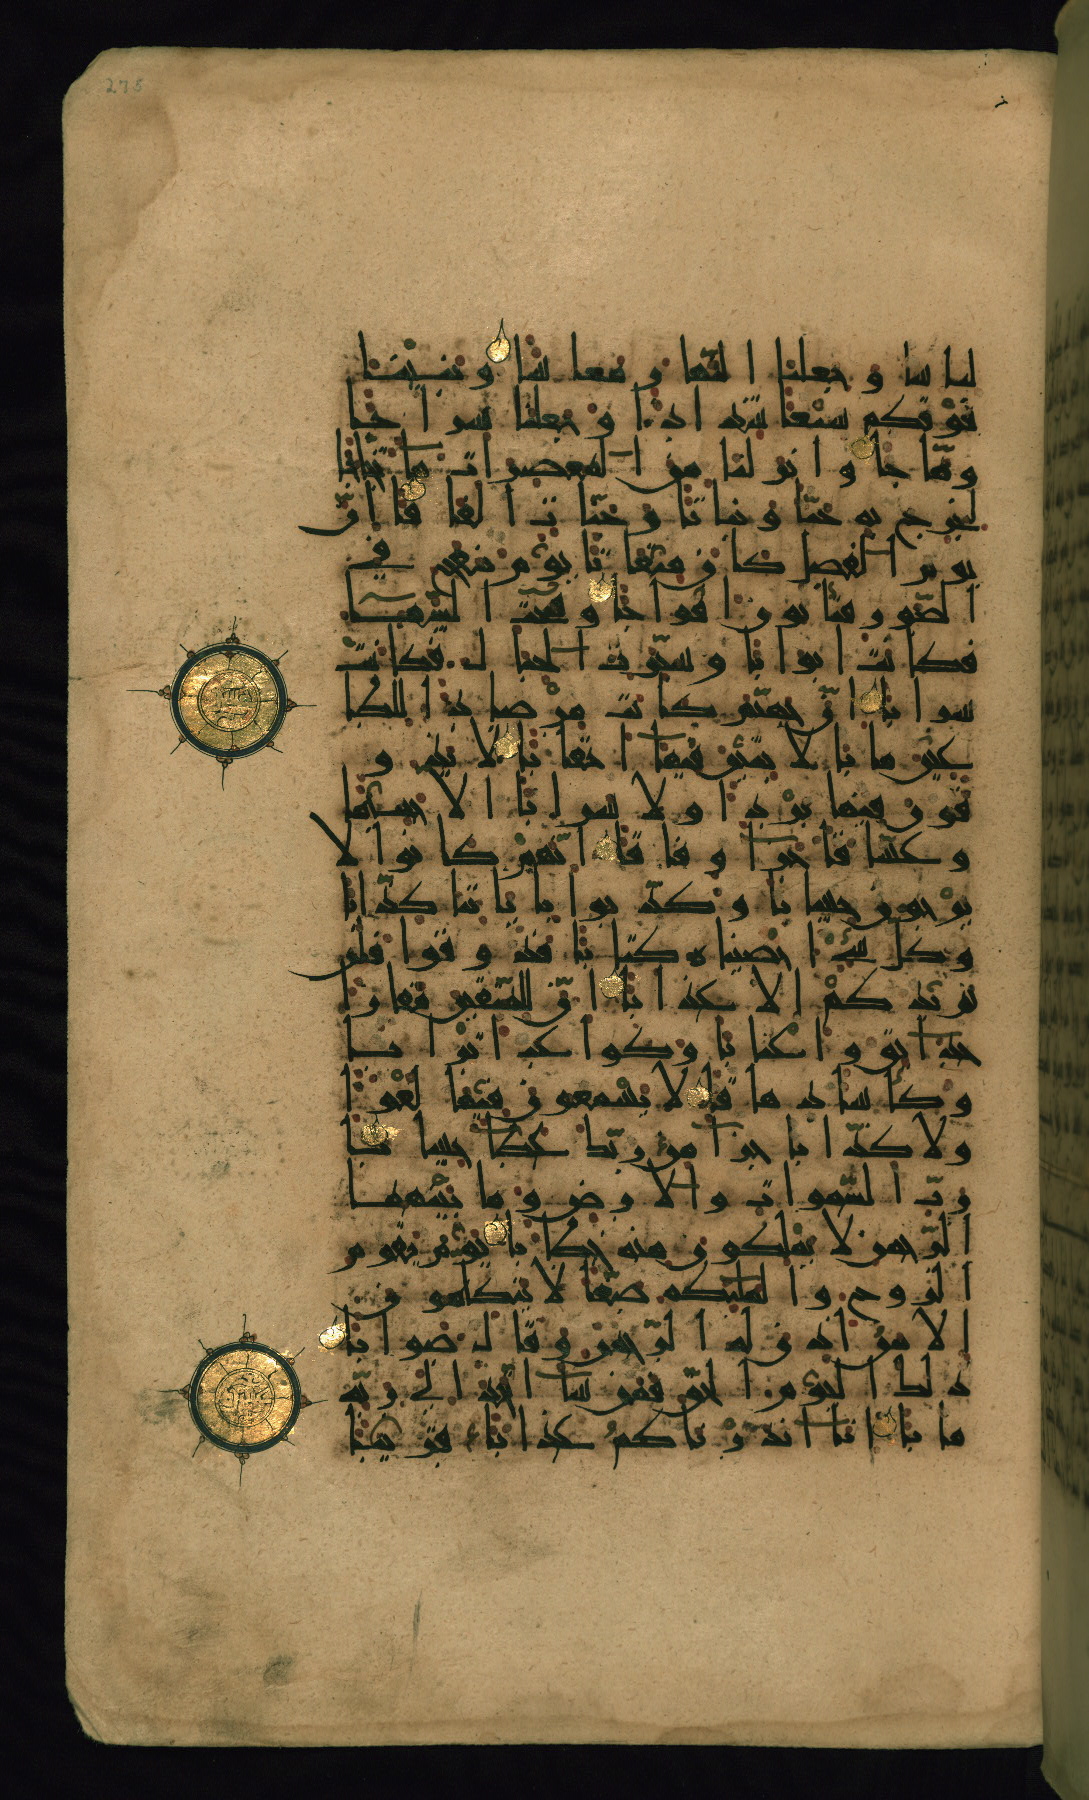 275
لباسا وجعلنا النهار معاشا وبنينا
فوقكم سبعا شدادا وجعلنا سراجا
وهاجا وانزلنا من المعصرات ما ثجاجا
لنخرج به حبا ونباتا وجنات الفافا ان
يوم الفصل كان ميقاتا يوم ينفخ في
الصور فتاتون افواجا وفتحت السما
فكانت ابوابا وسيرت الجبال فكانت
سرابا ان جهنم كانت مرصادا للطا
غين مابا لابثين فيها احقابا لا يذو
قون فيها بردا ولا شرابا الا حميما
وغساقا جزا وفاقا انهم كانوا لا
يرجون حسابا وكذبوا باياتنا كذابا
وكل شي احصيناه كتابا فذوقوا فلن
نزيدكم الا عذابا ان للمتقين مفازا
حدايق واعنابا وكواعب اترابا
وكاسا دهاقا لا يسمعون فيها لغوا
ولا كذابا جزا من ربك عطا حسابا
رب السموات والارض وما بينهما
الرحمن لا يملكون منه خطابا يوم يقوم
الروح والملئكة صفا لا يتكلمون
الا من اذن له الرحمن وقال صوابا
ذلك اليوم الحق فمن شا اتخذ الى ربه
مابا انا انذرناكم عذابا قريبا